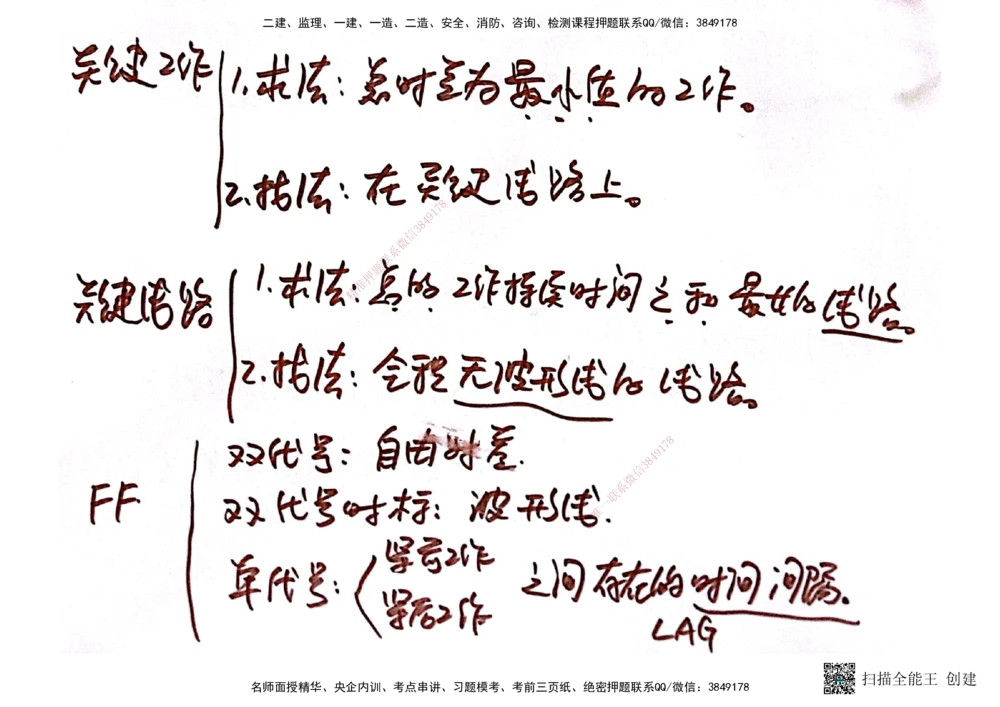 二建、监理、一建、一造、二造、安全、消防、咨询、检测课程押题联系QQ/微信：3849178
关键工作
1.求法：总时差为最小值的工作。
2.找法：在关键线路上。
关键线路
1.求法：总的工作持续时间之和最长的线路。
2.找法：全程无波形线的线路。
FF
双代号：自由时差.
双代号时标：波形线.
单代号：
紧前工作
紧后工作
之间存在的时间间隔.
LAG
押题联系微信3849178
唯一联系微信3849178
名师面授精华、央企内训、考点串讲、习题模考、考前三页纸、绝密押题联系QQ/微信：3849178
扫描全能王 创建